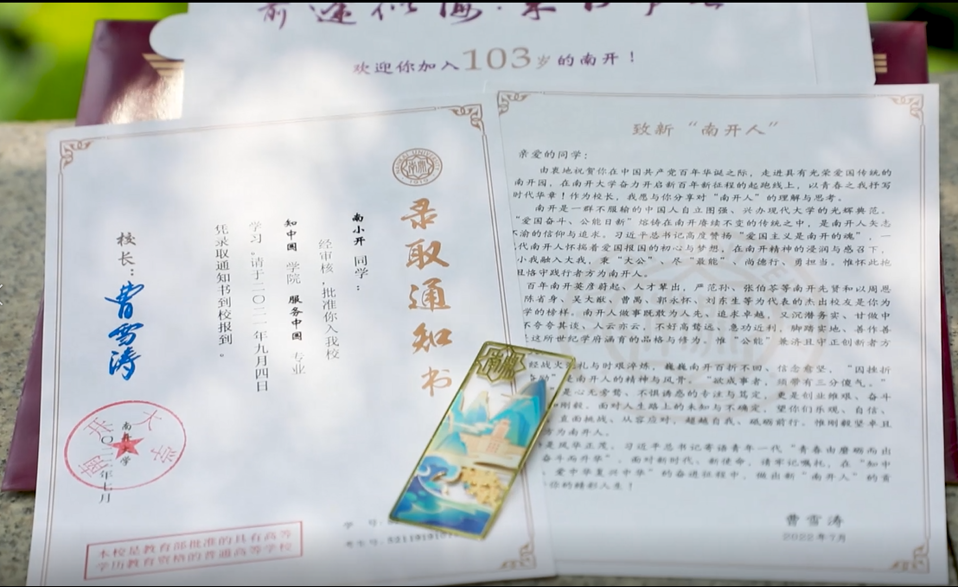 前途似海·来日方长
欢迎你加入103岁的南开！
录取通知书
南小开 同学：
经审核，批准你入我校
知中国 学院 服务中国 专业
学习。请于二〇二一年九月四日
凭录取通知书到校报到。
校长：曹雪涛
南开大学
〇二二年七月
本校是教育部批准的具有高等
学历教育资格的普通高等学校
学 号：
考生号：
致新“南开人”
亲爱的同学：
由衷地祝贺你在中国共产党百年华诞之际，走进具有光荣爱国传统的
南开园，在南开大学奋力开启新百年新征程的起跑线上，以青春之我抒写
时代华章！作为校长，我愿与你分享对“南开人”的理解与思考。
南开是一群不服输的中国人自立图强、兴办现代大学的光辉典范。
“爱国奋斗、公能日新”熔铸在南开赓续不变的传统之中，是南开人矢志
不渝的信仰与追求。习近平总书记高度赞扬“爱国主义是南开的魂”，一
代南开人怀揣着爱国报国的初心与梦想，在南开精神的浸润与感召下，
小我融入大我，秉“大公”、尽“最能”、尚德行、勇担当。惟怀此抱
且恪守践行者方为南开人。
百年南开英彦蔚起、人才辈出，严范孙、张伯苓等南开先贤和以周恩
陈省身、吴大猷、曹禺、郭永怀、刘东生等为代表的杰出校友是你为
学的榜样。南开人做事既敢为人先、追求卓越，又沉潜务实、甘做中
不夸夸其谈、人云亦云，不好高骛远、急功近利，脚踏实地、善作善
是这所世纪学府涵育的品格与修为。惟“公能”兼济且守正创新者方
经战火洗礼与时艰淬炼，巍巍南开百折不回、信念愈坚，“因挫折
是南开人的精神与风骨。“欲成事者，须带有三分傻气。”
是心无旁骛、不惧诱惑的专注与笃定，更是创业维艰、奋斗
刚毅。面对人生路上的未知与不确定，望你们乐观、自信、
直面挑战、从容应对，超越自我、砥砺前行。惟刚毅坚卓且
方为南开人。
是风华正茂。习近平总书记寄语青年一代“青春由磨砺而出
奋斗而升华”。面对新时代、新使命，请牢记嘱托，在“知中
爱中华复兴中华”的奋进征程中，做出新“南开人”的贡
你的精彩人生！
曹雪涛
2022年7月